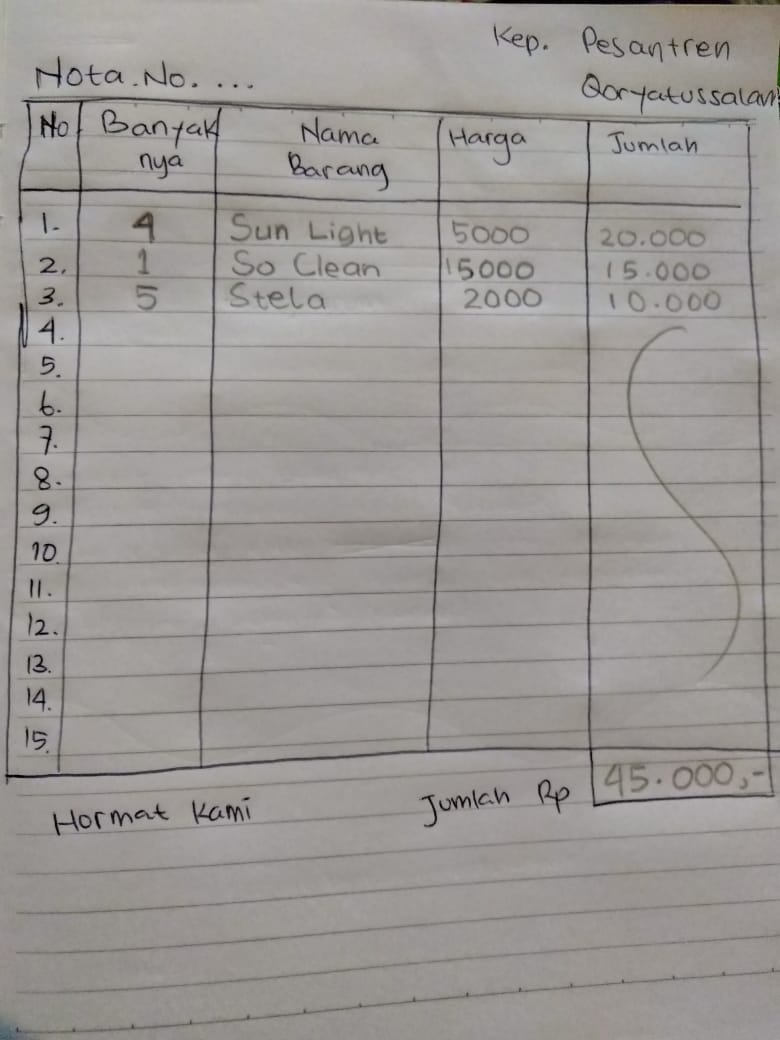 Kep. Pesantren
Nota.No. ....
Qoryatussalam
No Banyak nya Nama Barang Harga Jumlah
1. 4 Sun Light 5000 20.000
2. 1 So Clean 15000 15.000
3. 5 Stela 2000 10.000
4.
5.
6.
7.
8.
9.
10.
11.
12.
13.
14.
15.
45.000,-
Hormat Kami Jumlah Rp